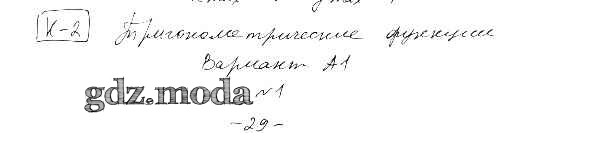 К-2 Тригонометрические функции
Вариант А1
gdz.moda №1
-29-